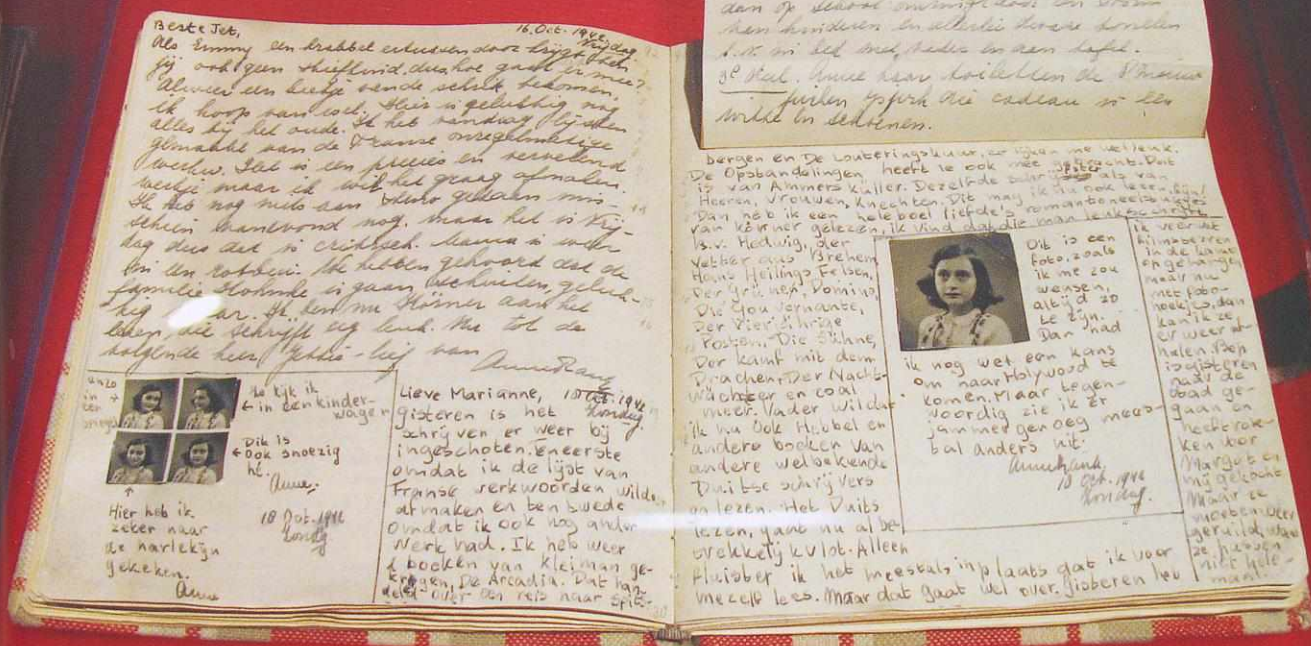 Beste Jet,
16 Oct. 1942
Vrijdag
Als Emmy een krabbel ertussen door krijgt ben
jij ook geen stiefkind. dus hoe gaat er mee?
Alweer een beetje van de schrik bekomen,
ik hoop van wel. Hier is gelukkig nog
alles bij het oude. Ik heb vandaag lijsten
gemaakt van de Franse onregelmatige
werkw. Het is een precies en vervelend
werkje maar ik wil het graag afmaken.
Ik heb nog niets aan steno gedaan mis-
schien vanavond nog, maar het is Vrij-
dag dus dat is critisch. Mama is weer
in een rotbui. We hebben gehoord dat de
familie is gaan schuilen, geluk-
kig maar. Ik ben nu Körner aan het
lezen, die schrijft erg leuk. Nu tot de
volgende keer Jettie-lief van
Anne Frank
in
een
Ho kijk ik
← in een kinder-
wagen
Dik is
← ook snoezig
hé.
Anne.
↑
Hier heb ik
zeker naar
de harlekijn
gekeken.
Anne
18 Oct. 1942
Zondag
Lieve Marianne,
10 Oct. 1942
Zondag
Gisteren is het
schrijven er weer bij
ingeschoten. Eneerste
omdat ik de lijst van
Franse werkwoorden wilde
afmaken en ten twede
omdat ik ook nog ander
werk had. Ik heb weer
2 boeken van Kleiman ge-
kregen, De Arcadia. Dat han-
deld over een reis naar Spits-
dan op school
kan hinderen en allerlei dwaze
in bed met vader en aan tafel.
3e deel. Anne haar toiletten de
witte en schoenen.
bergen en De Louteringskuur, ze lijken me wel leuk.
De Opstandelingen heeft ie ook mee gebracht. Dat
is van Ammers Küller. Dezelfde schrijfster als van
Heeren, Vrouwen, Knechten. Dit mag ik nu ook lezen, fijn!
Dan heb ik een heleboel liefde's romantoneelstukjes
van körner gelezen, ik vind dat die man leuk schrijft
B.v. Hedwig, der
Vetter aus Brehem,
Hans Heilings Felsen,
Der Grünen, Domino,
Die Gouvernante,
Der Vierjährige
Posten, Die Sühne,
Der kamf mit dem
Drachen, Der Nacht-
wachter en zoal
meer. Vader wil dat
ik nu ook Hebbel en
andere boeken van
andere welbekende
Duitse schrijvers
ga lezen. Het Duits
lezen, gaat nu al be-
trekkelijk vlot. Alleen
fluister ik het meestal inplaats dat ik voor
mezelf lees. Maar dat gaat wel over. gisteren heb
Dit is een
foto, zoals
ik me zou
wensen,
altijd zo
te zijn.
Dan had
ik nog wel een kans
om naar Holywood te
komen. Maar tegen-
woordig zie ik er
jammer genoeg mees-
tal anders uit.
Anne Frank.
10 Oct. 1942
Zondag.
ik weer
filmsterren
in de kamer
opgehangen
maar nu
met foto-
hoekjes, dan
kan ik ze
er weer af-
halen. Bep
is gisteren
naar de
stad ge-
gaan en
heeft rok-
ken voor
Margot en
mij gekocht.
Maar ze
moeten weer
geruild, want
ze
niet hele-
maal